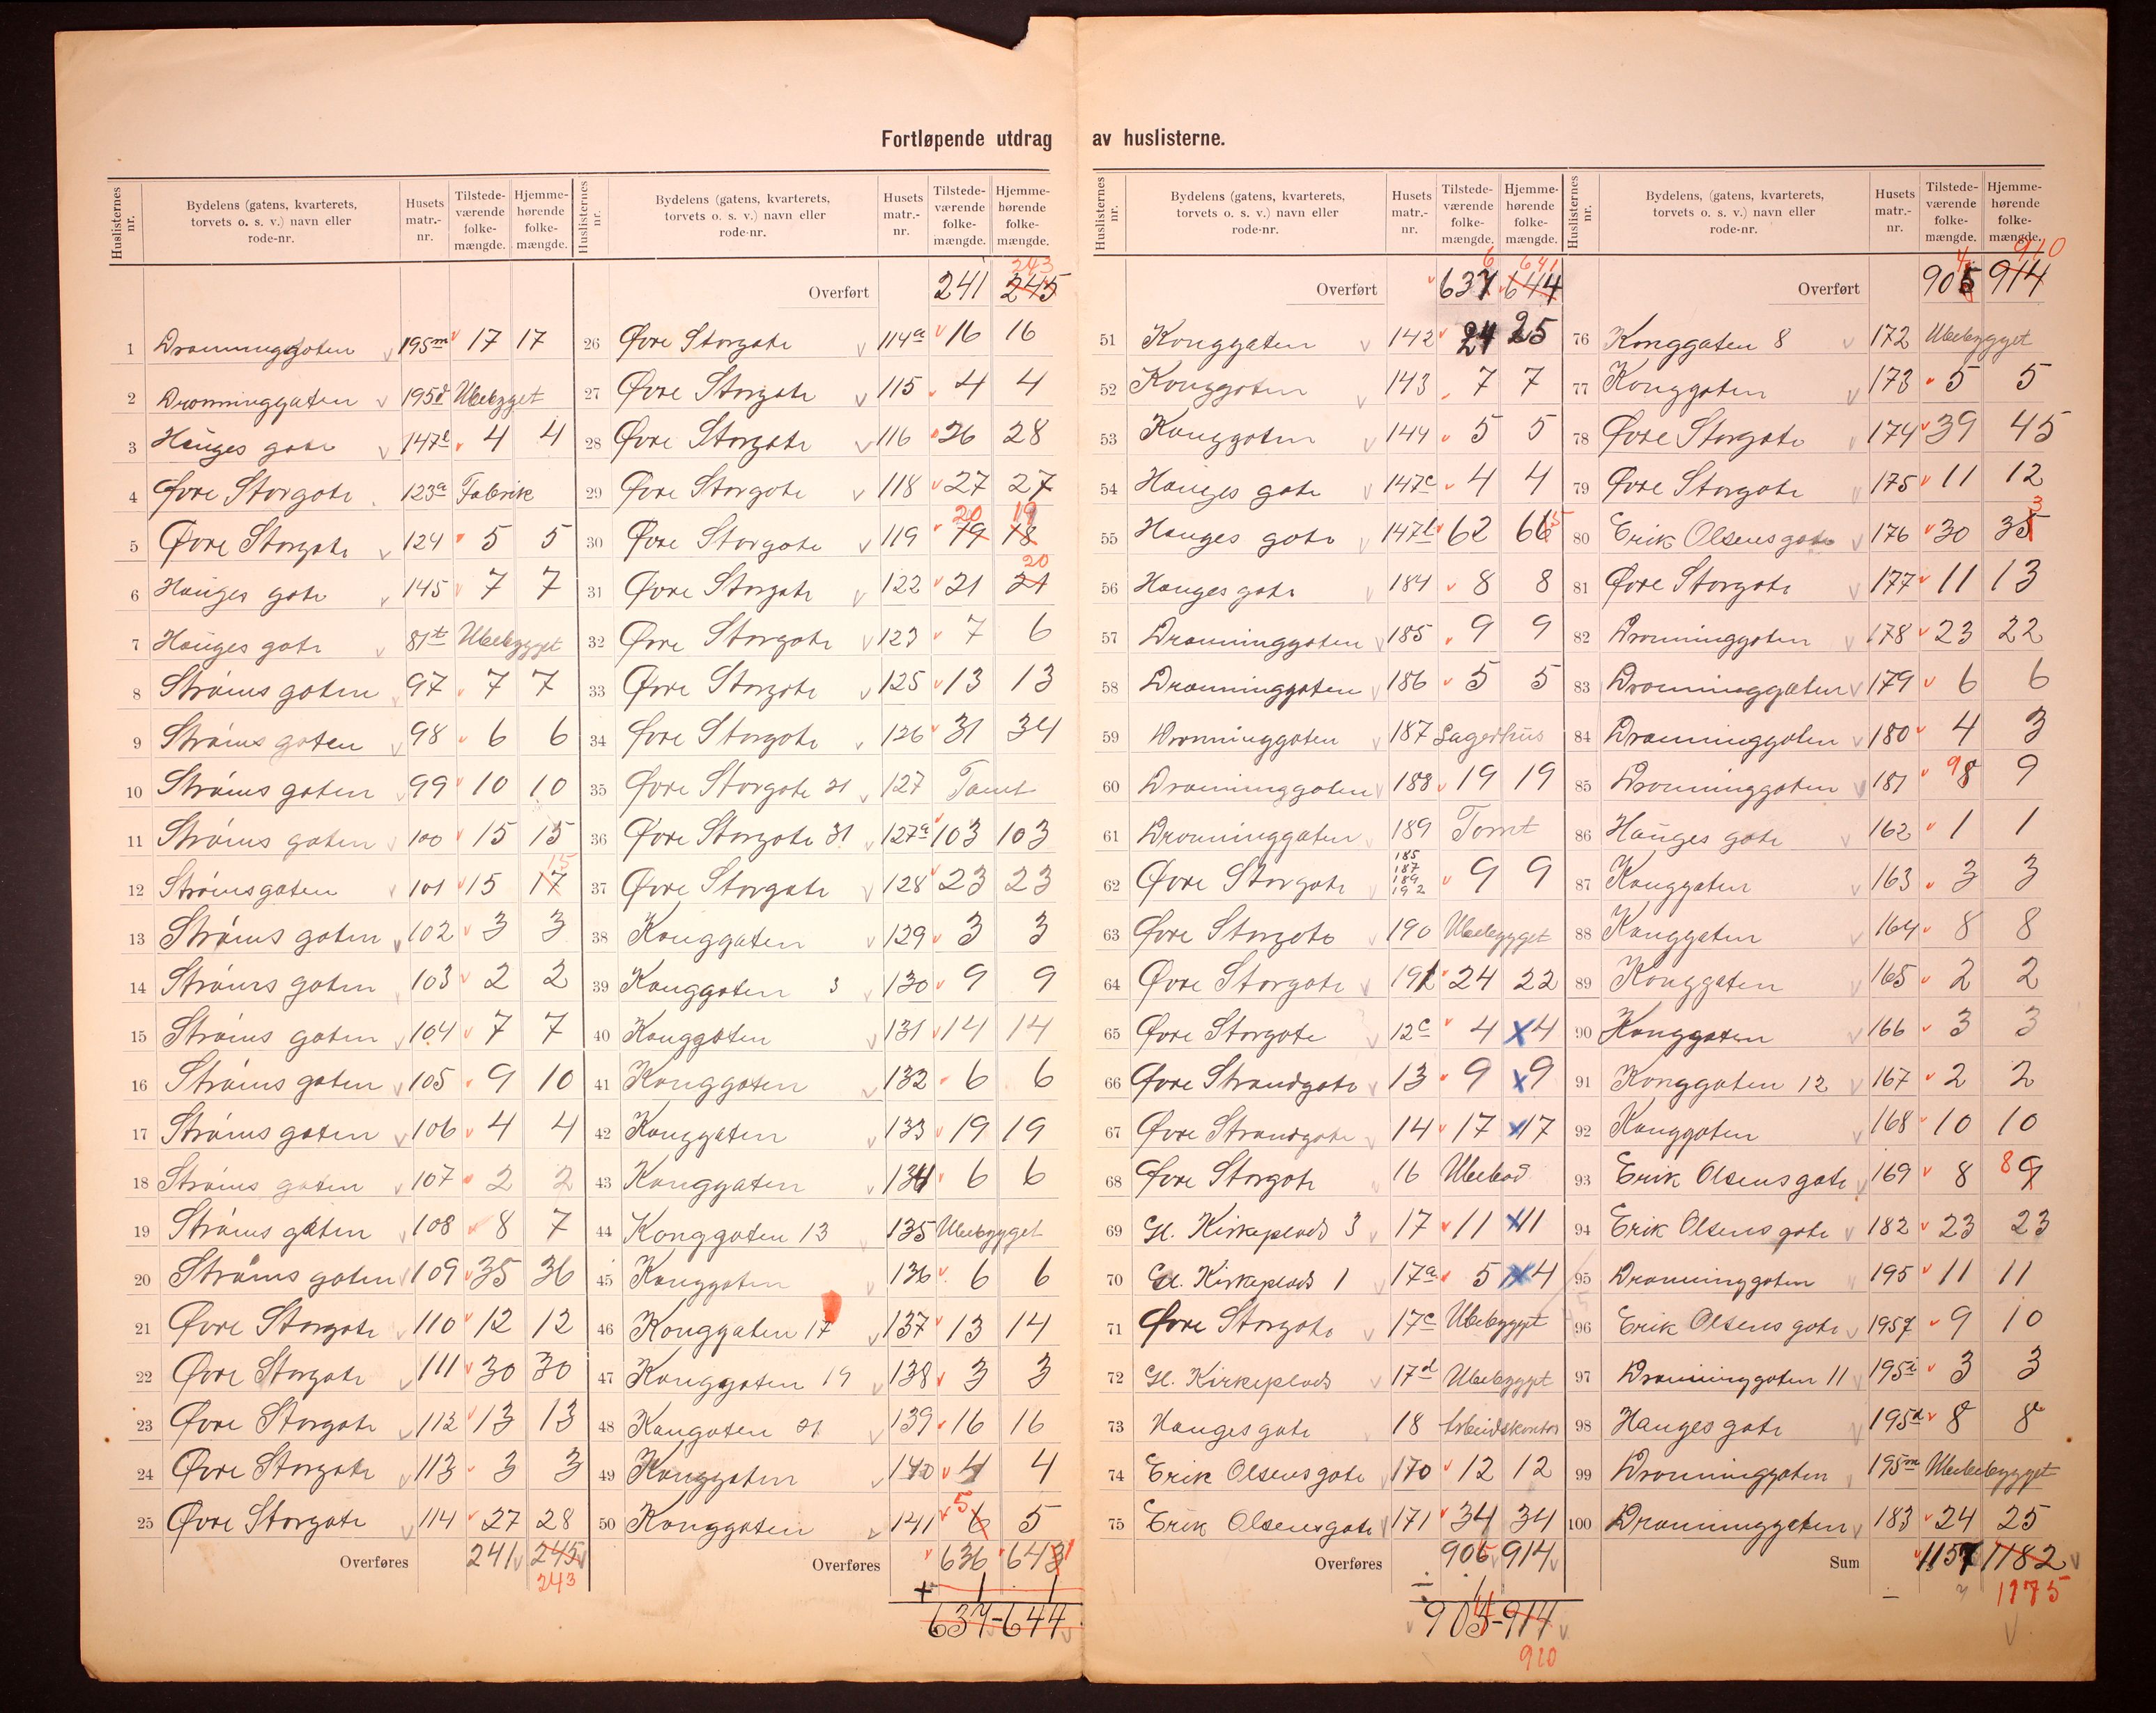 Fortløpende utdrag av huslisterne.
Huslisternes nr. | Bydelens (gatens, kvarterets, torvets o. s. v.) navn eller rode-nr. | Husets matr.-nr. | Tilstede-værende folke-mængde. | Hjemme-hørende folke-mængde.
1 Dronninggaten 195m 17 17
2 Dronninggaten 195d Ubebygget
3 Hauges gate 147b 4 4
4 Øvre Storgate 123a Fabrik
5 Øvre Storgate 124 5 5
6 Hauges gate 145 7 7
7 Hauges gate 81t Ubebygget
8 Strøms gaten 97 7 7
9 Strøms gaten 98 6 6
10 Strøms gaten 99 10 10
11 Strøms gaten 100 15 15
12 Strømsgaten 101 15 17 15
13 Strøms gaten 102 3 3
14 Strøms gaten 103 2 2
15 Strøms gaten 104 7 7
16 Strøms gaten 105 9 10
17 Strøms gaten 106 4 4
18 Strøms gaten 107 2 2
19 Strøms gaten 108 8 7
20 Strøms gaten 109 35 36
21 Øvre Storgate 110 12 12
22 Øvre Storgate 111 30 30
23 Øvre Storgate 112 13 13
24 Øvre Storgate 113 3 3
25 Øvre Storgate 114 27 28
Overføres 241 245
243
Huslisternes nr. | Bydelens (gatens, kvarterets, torvets o. s. v.) navn eller rode-nr. | Husets matr.-nr. | Tilstede-værende folke-mængde. | Hjemme-hørende folke-mængde.
243
Overført 241 245
26 Øvre Storgate 114a 16 16
27 Øvre Storgate 115 4 4
28 Øvre Storgate 116 26 28
29 Øvre Storgate 118 27 27
30 Øvre Storgate 119 19 20 18 19
31 Øvre Storgate 122 21 21 20
32 Øvre Storgate 123 7 6
33 Øvre Storgate 125 13 13
34 Øvre Storgate 126 31 34
35 Øvre Storgate 31 127 Tomt
36 Øvre Storgate 31 127a 103 103
37 Øvre Storgate 128 23 23
38 Konggaten 129 3 3
39 Konggaten 3 130 9 9
40 Konggaten 131 14 14
41 Konggaten 132 6 6
42 Konggaten 133 19 19
43 Konggaten 134 6 6
44 Konggaten 13 135 Ubebygget
45 Konggaten 136 6 6
46 Konggaten 17 137 13 14
47 Konggaten 19 138 3 3
48 Kongaten 21 139 16 16
49 Konggaten 140 4 4
50 Konggaten 141 6 5 5
Overføres 636 643 1
+ 1 1
637 - 644
Huslisternes nr. | Bydelens (gatens, kvarterets, torvets o. s. v.) navn eller rode-nr. | Husets matr.-nr. | Tilstede-værende folke-mængde. | Hjemme-hørende folke-mængde.
6 641
Overført 637 644
51 Konggaten 142 24 25
52 Konggaten 143 7 7
53 Konggaten 144 5 5
54 Hauges gate 147c 4 4
55 Hauges gate 147b 62 66 5
56 Hauges gate 184 8 8
57 Dronninggaten 185 9 9
58 Dronninggaten 186 5 5
59 Dronninggaten 187 Lagerhus
60 Dronninggaten 188 19 19
61 Dronninggaten 189 Tomt
62 Øvre Storgate 185 187 189 192 9 9
63 Øvre Storgate 190 Ubebygget
64 Øvre Storgate 191 24 22
65 Øvre Storgate 12c 4 x 4
66 Øvre Strandgate 13 9 x 9
67 Øvre Strandgate 14 17 x 17
68 Øvre Storgate 16 Ubebod
69 Gl. Kirkeplads 3 17 11 x 11
70 Gl. Kirkeplads 1 17a 5 x 4
71 Øvre Storgate 17c Ubebygget
72 Gl. Kirkeplads 17d Ubebygget
73 Hauges gate 18 Arbeidskontor
74 Erik Olsens gate 170 12 12
75 Erik Olsensgate 171 34 34
Overføres 906 914
÷ 1
905 - 914
910
Huslisternes nr. | Bydelens (gatens, kvarterets, torvets o. s. v.) navn eller rode-nr. | Husets matr.-nr. | Tilstede-værende folke-mængde. | Hjemme-hørende folke-mængde.
4 910
Overført 905 914
76 Konggaten 8 172 Ubebygget
77 Konggaten 173 5 5
78 Øvre Storgate 174 39 45
79 Øvre Storgate 175 11 12
80 Erik Olsensgate 176 30 35 3
81 Øvre Storgate 177 11 13
82 Dronninggaten 178 23 22
83 Dronninggaten 179 6 6
84 Dronninggaten 180 4 3
85 Dronninggaten 181 9 8 9
86 Hauges gate 162 1 1
87 Konggaten 163 3 3
88 Konggaten 164 8 8
89 Konggaten 165 2 2
90 Konggaten 166 3 3
91 Konggaten 12 167 2 2
92 Konggaten 168 10 10
93 Erik Olsens gate 169 8 8 9
94 Erik Olsens gate 182 23 23
95 Dronninggaten 195 11 11
96 Erik Olsens gate 195f 9 10
97 Dronninggaten 11 195i 3 3
98 Hauges gate 195d 8 8
99 Dronninggaten 195m Ubebebygget
100 Dronninggaten 183 24 25
Sum 1157 1182
1175